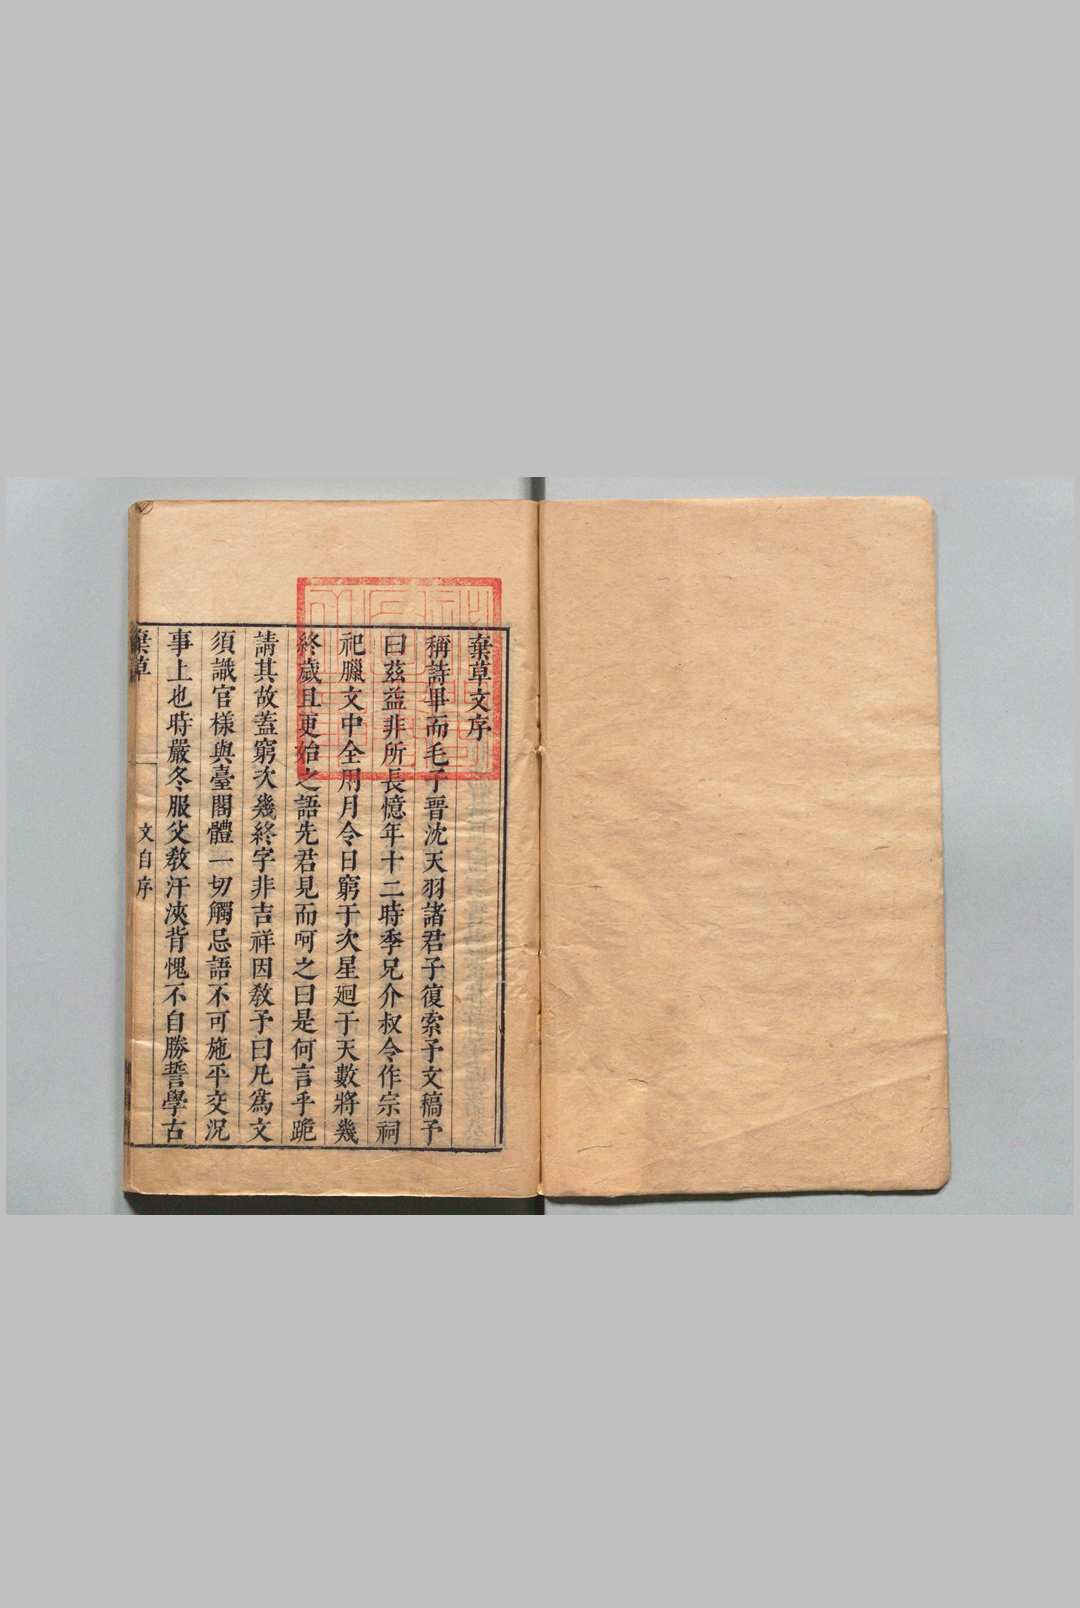 棄草文序
稱詩畢而毛子晉沈天羽諸君子復索予文稿予
曰茲益非所長憶年十二時季兄介叔令作宗祠
祀臘文中全用月令日窮于次星廻于天數將幾
終歲且更始之語先君見而呵之曰是何言乎跪
請其故蓋窮次幾終字非吉祥因敎予曰凡爲文
須識官樣與臺閣體一切觸忌語不可施平交況
事上也時嚴冬服父敎汗浹背愧不自勝誓學古
棄草
文自序